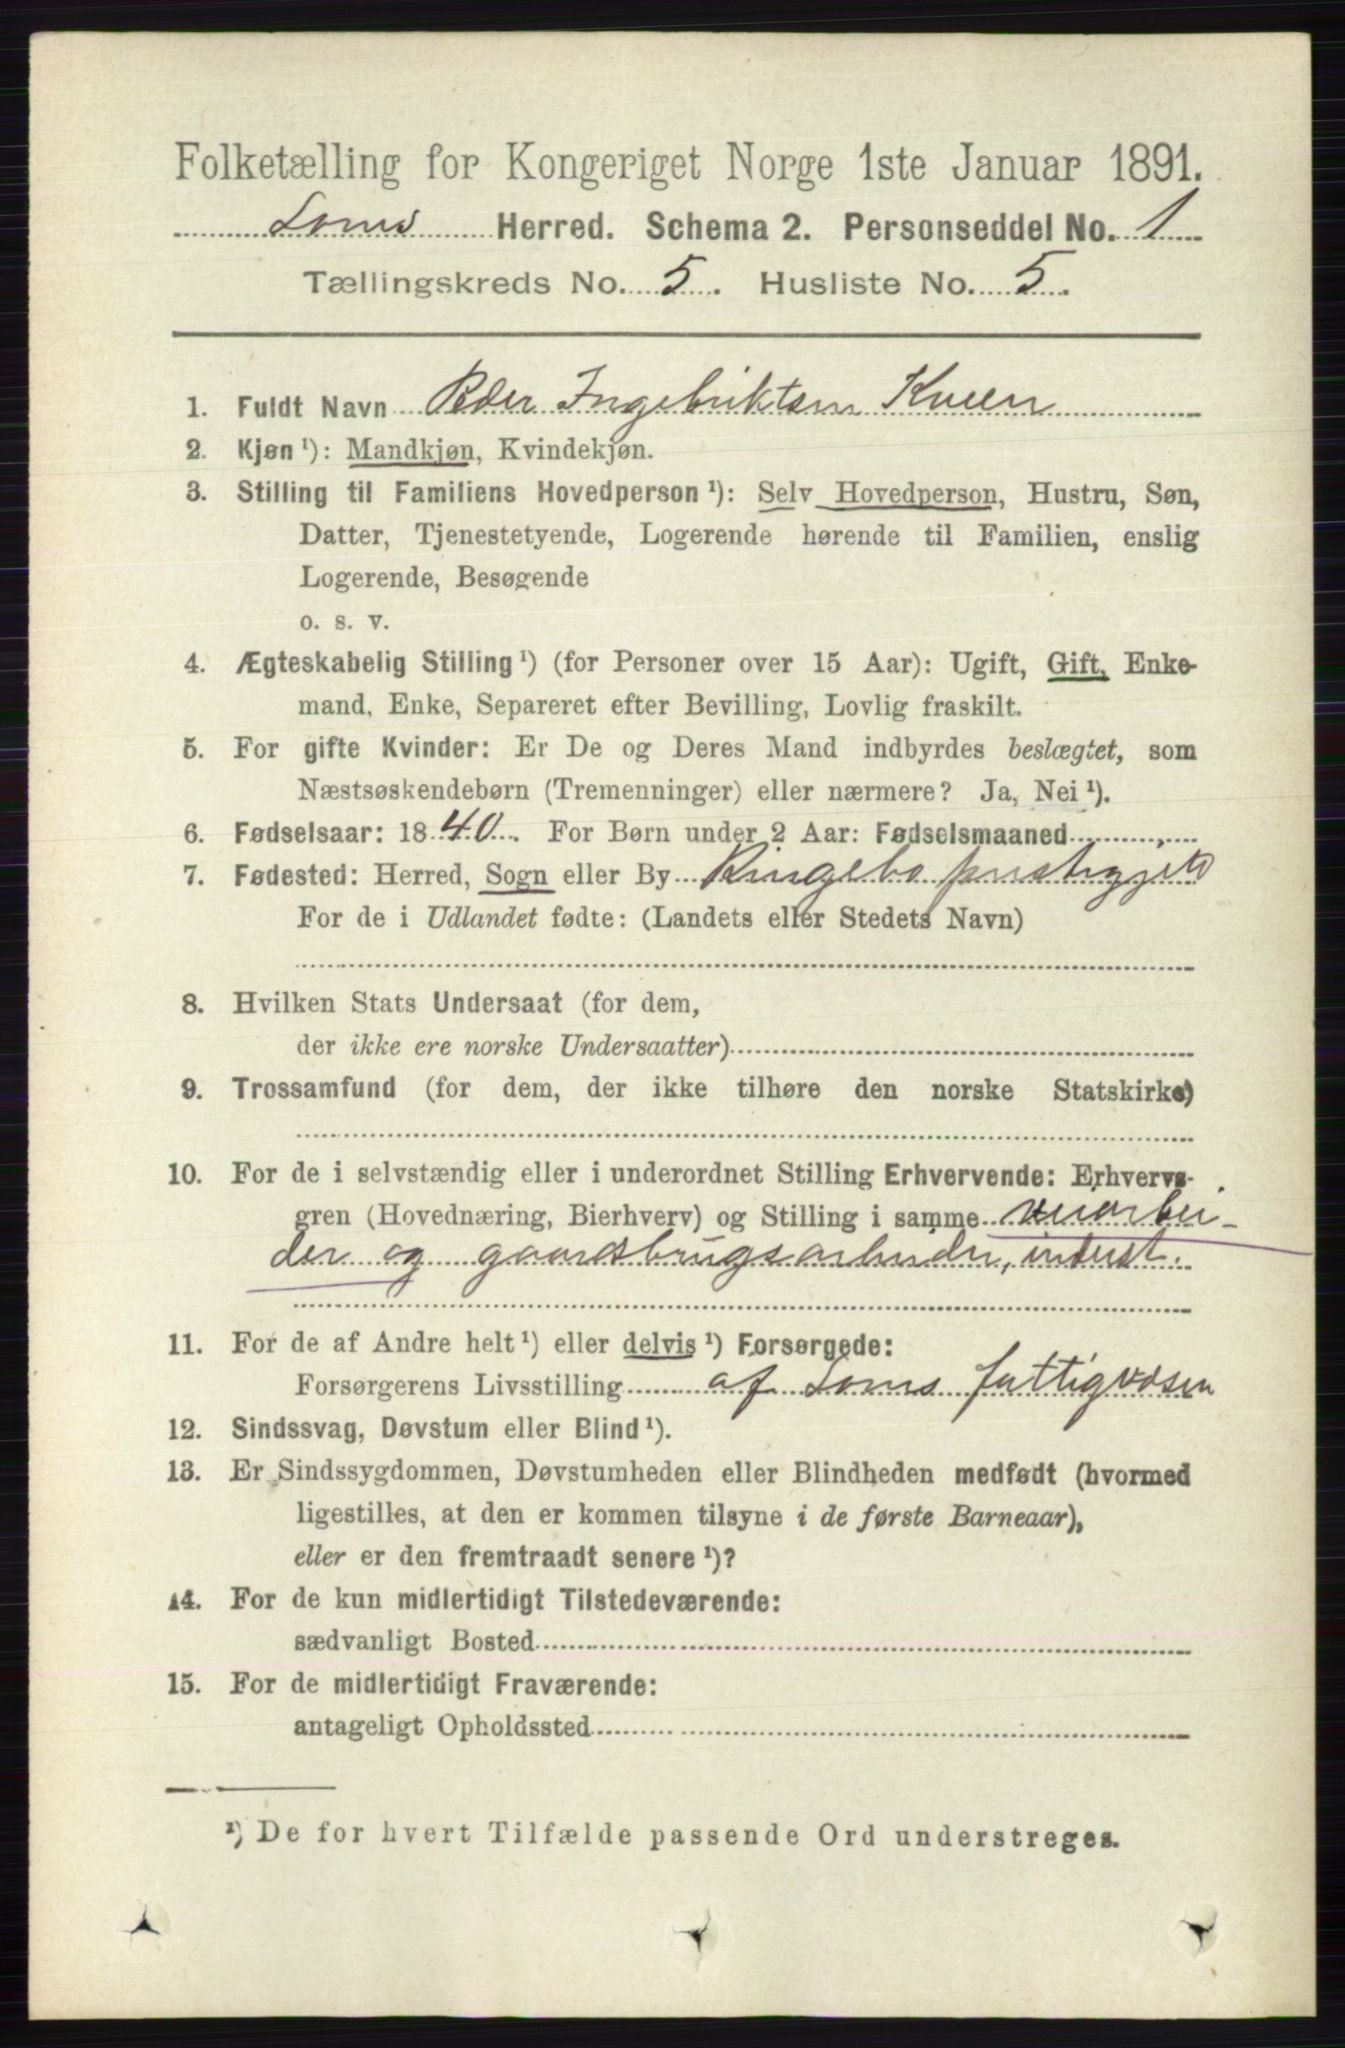 Folketælling for Kongeriget Norge 1ste Januar 1891.
Loms Herred. Schema 2. Personseddel No. 1
Tællingskreds No. 5. Husliste No. 5.
1. Fuldt Navn Peder Ingebriktsen Kveen
2. Kjøn ¹): Mandkjøn, Kvindekjøn.
3. Stilling til Familiens Hovedperson ¹): Selv Hovedperson, Hustru, Søn,
Datter, Tjenestetyende, Logerende hørende til Familien, enslig
Logerende, Besøgende
o. s. v.
4. Ægteskabelig Stilling ¹) (for Personer over 15 Aar): Ugift, Gift, Enke-
mand, Enke, Separeret efter Bevilling, Lovlig fraskilt.
5. For gifte Kvinder: Er De og Deres Mand indbyrdes beslægtet, som
Næstsøskendebørn (Tremenninger) eller nærmere? Ja, Nei ¹).
6. Fødselsaar: 1840. For Børn under 2 Aar: Fødselsmaaned
7. Fødested: Herred, Sogn eller By Ringebo
For de i Udlandet fødte: (Landets eller Stedets Navn)
8. Hvilken Stats Undersaat (for dem,
der ikke ere norske Undersaatter)
9. Trossamfund (for dem, der ikke tilhøre den norske Statskirke)
10. For de i selvstændig eller i underordnet Stilling Erhvervende: Erhvervs-
gren (Hovednæring, Bierhverv) og Stilling i samme veiarbei-
der og gaardsbrugsarbeider, inderst.
11. For de af Andre helt ¹) eller delvis ¹) Forsørgede:
Forsørgerens Livsstilling af Loms fattigvæsen
12. Sindssvag, Døvstum eller Blind ¹).
13. Er Sindssygdommen, Døvstumheden eller Blindheden medfødt (hvormed
ligestilles, at den er kommen tilsyne i de første Barneaar),
eller er den fremtraadt senere ¹)?
14. For de kun midlertidigt Tilstedeværende:
sædvanligt Bosted
15. For de midlertidigt Fraværende:
antageligt Opholdssted
¹) De for hvert Tilfælde passende Ord understreges.